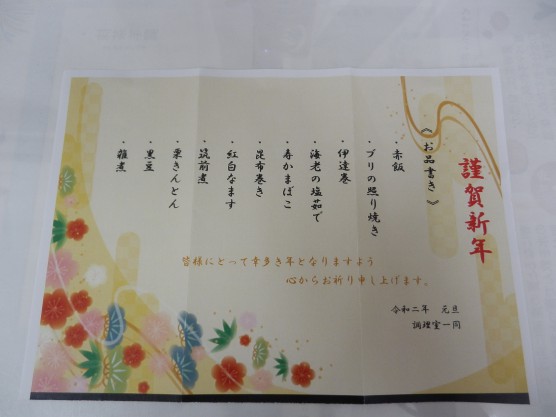 謹賀新年
《お品書き》
・赤飯
・ブリの照り焼き
・伊達巻
・海老の塩茹で
・寿かまぼこ
・昆布巻き
・紅白なます
・筑前煮
・栗きんとん
・黒豆
・雑煮
皆様にとって幸多き年となりますよう
心からお祈り申し上げます。
令和二年　元旦
調理室一同